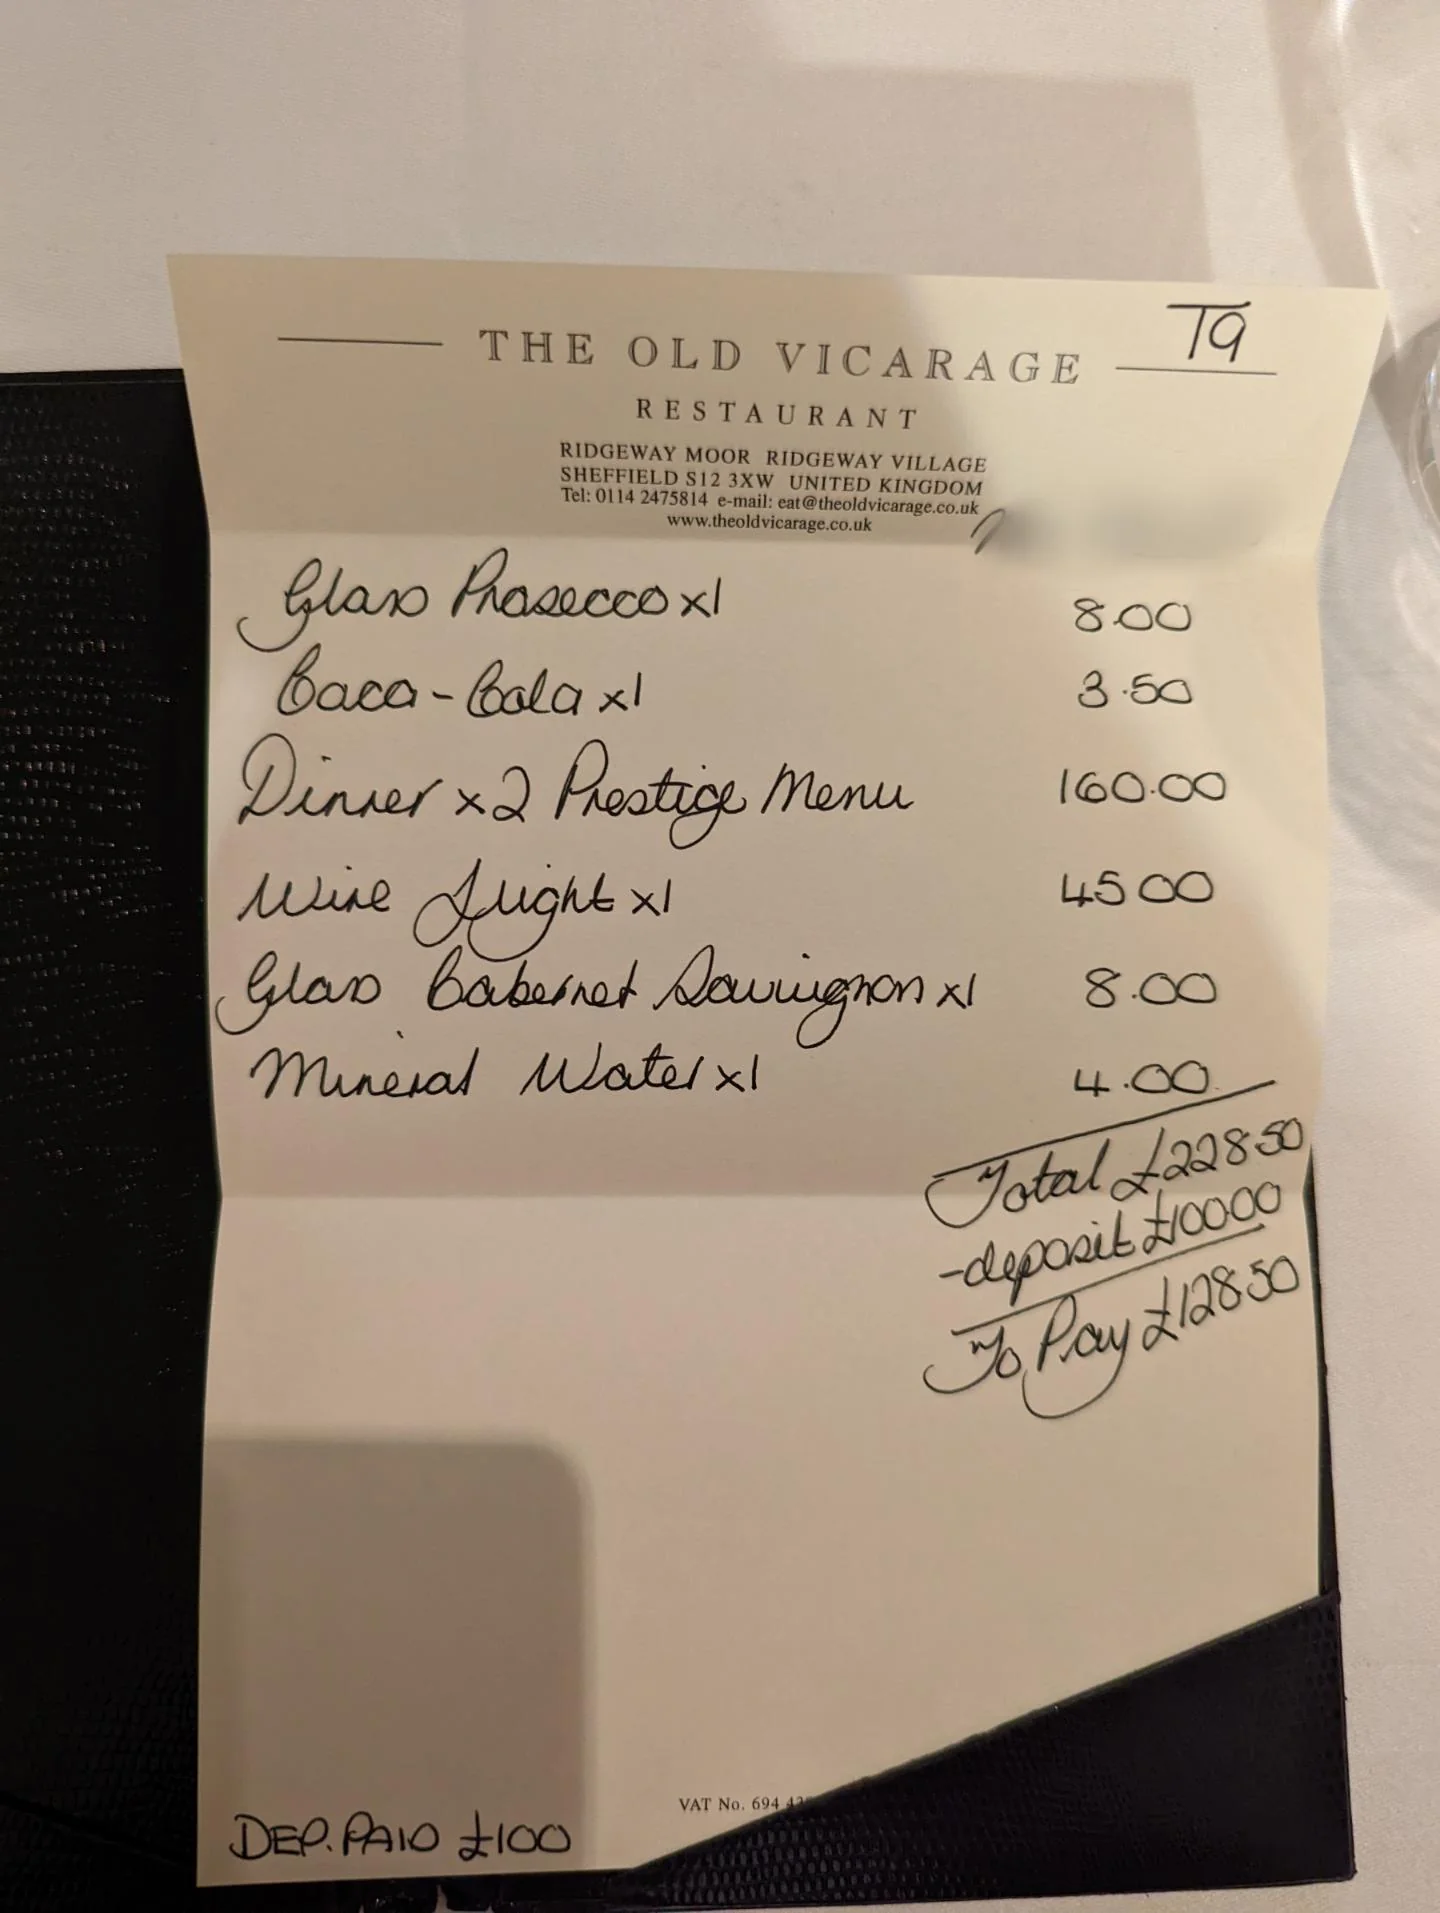 T9
THE OLD VICARAGE
RESTAURANT
RIDGEWAY MOOR RIDGEWAY VILLAGE
SHEFFIELD S12 3XW UNITED KINGDOM
Tel: 0114 2475814 e-mail: eat@theoldvicarage.co.uk
www.theoldvicarage.co.uk
Glass Prosecco x1 8.00
Coca-Cola x1 3.50
Dinner x2 Prestige Menu 160.00
Wine flight x1 45 00
Glass Cabernet Sauvignon x1 8.00
Mineral Water x1 4.00
Total £228.50
-deposit £100.00
To Pay £128.50
VAT No. 694
DEP. PAID £100